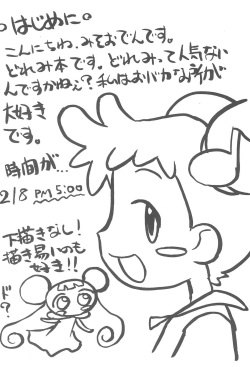 ○はじめに○
こんにちわ、みておでんです。
どれみ本です。どれみって人気ない
んですかねぇ?私はおバカな所が
大好き
です。
時間が…
2/8 PM5:00
下描きなし!
描き易いのも
好き!!
ド?